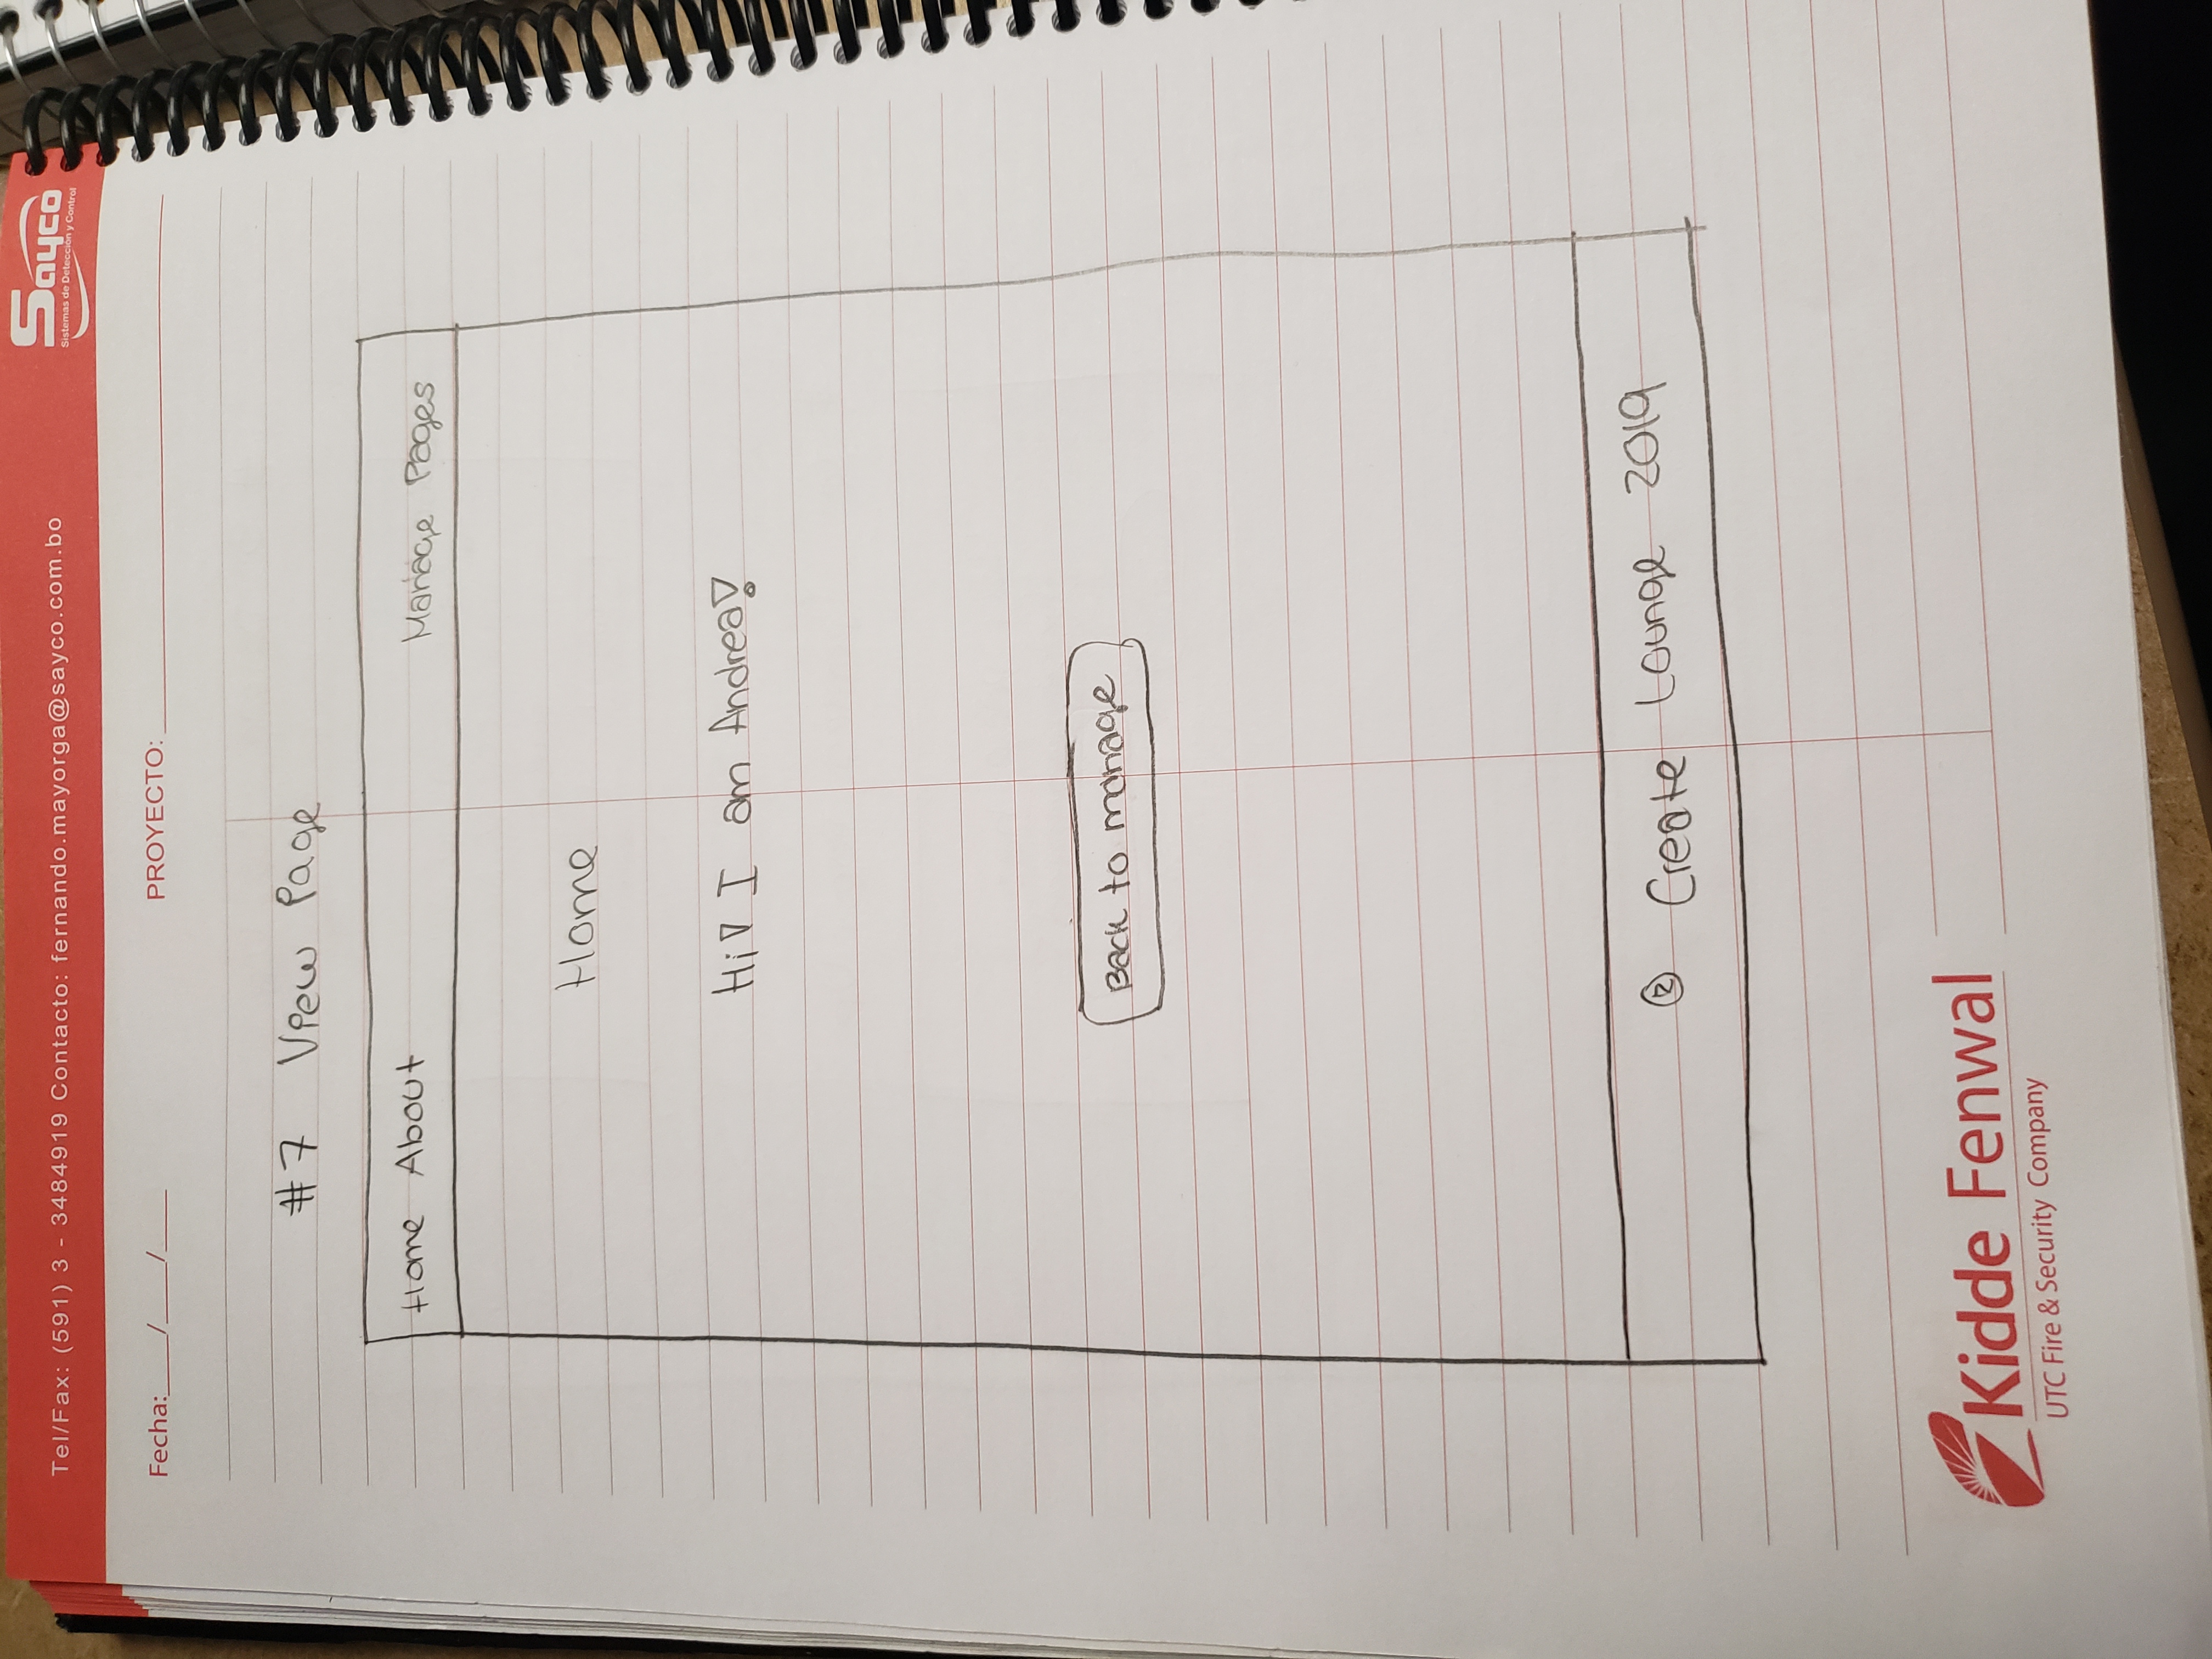 Tel/Fax: (591) 3 - 3484919 Contacto: fernando.mayorga@sayco.com.bo
Sayco
Sistemas de Detección y Control
Fecha:____/____/____ PROYECTO:
#7 View Page
Home About Manage Pages
Home
Hi! I am Andrea!
Back to manage
Create Lounge 2019
Kidde Fenwal
UTC Fire & Security Company